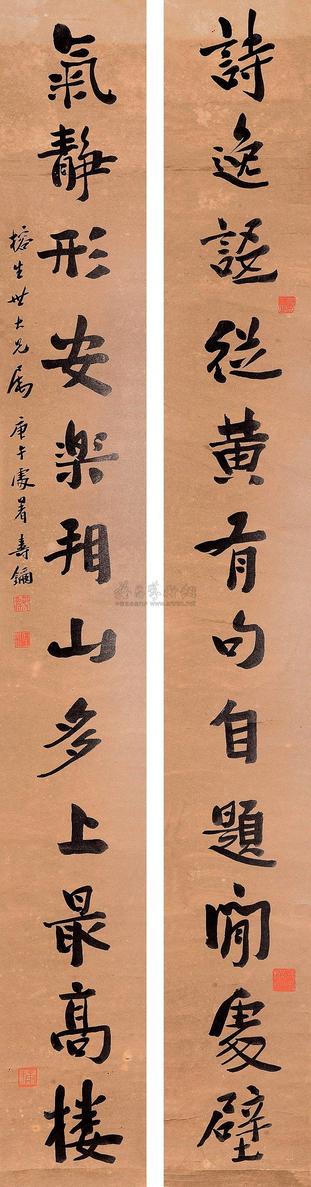 詩逸從黃有句自題閒處壁
氣靜形安楽山多上最高楼
榕生世大兄屬 庚午處暑壽鏞